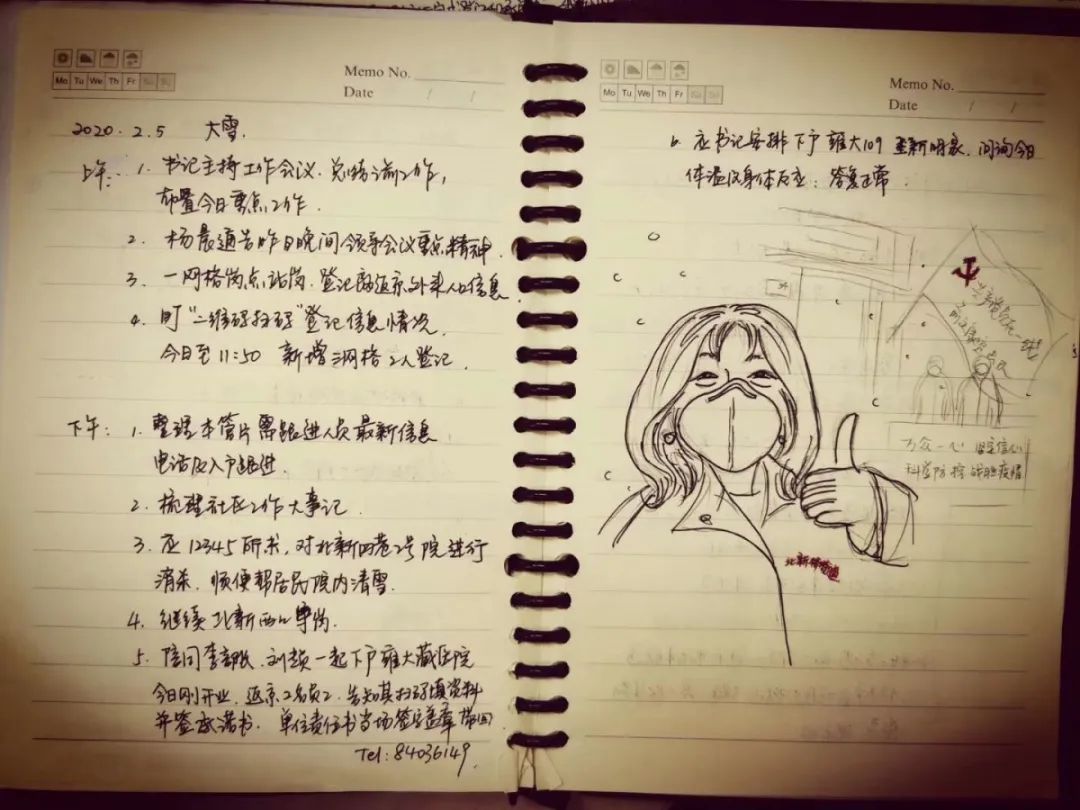 Mo Tu We Th Fr Sa Su
Memo No.
Date / /
2020.2.5 大雪.
上午: 1. 书记主持工作会议. 总结之前工作,
布置今日重点工作.
2. 杨晨通告昨日晚间领导会议重点精神.
3. 一网格岗点站岗. 登记返京外来人口信息
4. 盯“二维码扫码”登记信息情况.
今日至11:50 新增三网格2人登记.
下午: 1. 整理本管片需跟进人员最新信息
电话及入户跟进.
2. 梳理社区工作大事记
3. 应12345所求, 对北新四巷2号院进行
消杀. 顺便帮居民院内清雪.
4. 继续北新西口岗.
5. 陪同 一起下户雍大藏医院
今日刚开业. 返京2名员工. 告知其扫码填资料
并签承诺书. 单位责任书当场签字盖章带回
Tel: 84036149.
Mo Tu We Th Fr Sa Su
Memo No.
Date / /
6. 应书记安排下户雍大109 . 问询今日
体温及身体反应: 答复正常.
共产党员在一线
万众一心 坚定信心
科学防控 战胜疫情